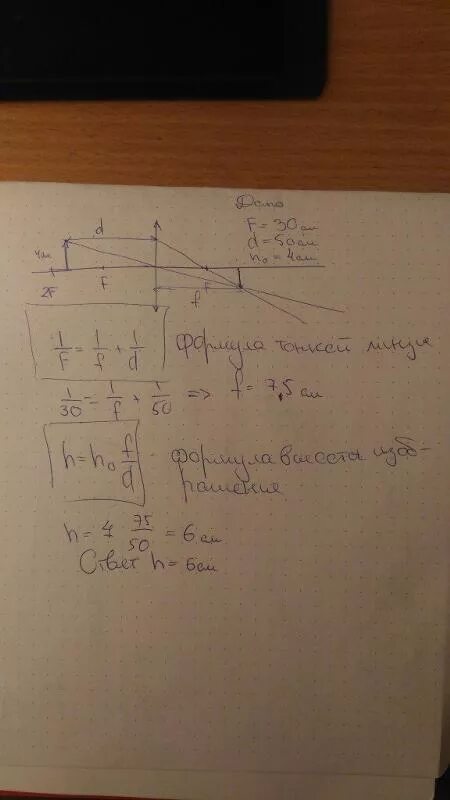 Дано
F = 30 см
d = 50 см
h₀ = 4 см
d
4см
2F F F
f
1/F = 1/f + 1/d Формула тонкой линзы
1/30 = 1/f + 1/50 => f = 7,5 см
h = h₀ f/d Формула высоты изоб-
ражения
h = 4 75/50 = 6 см
Ответ h = 6см